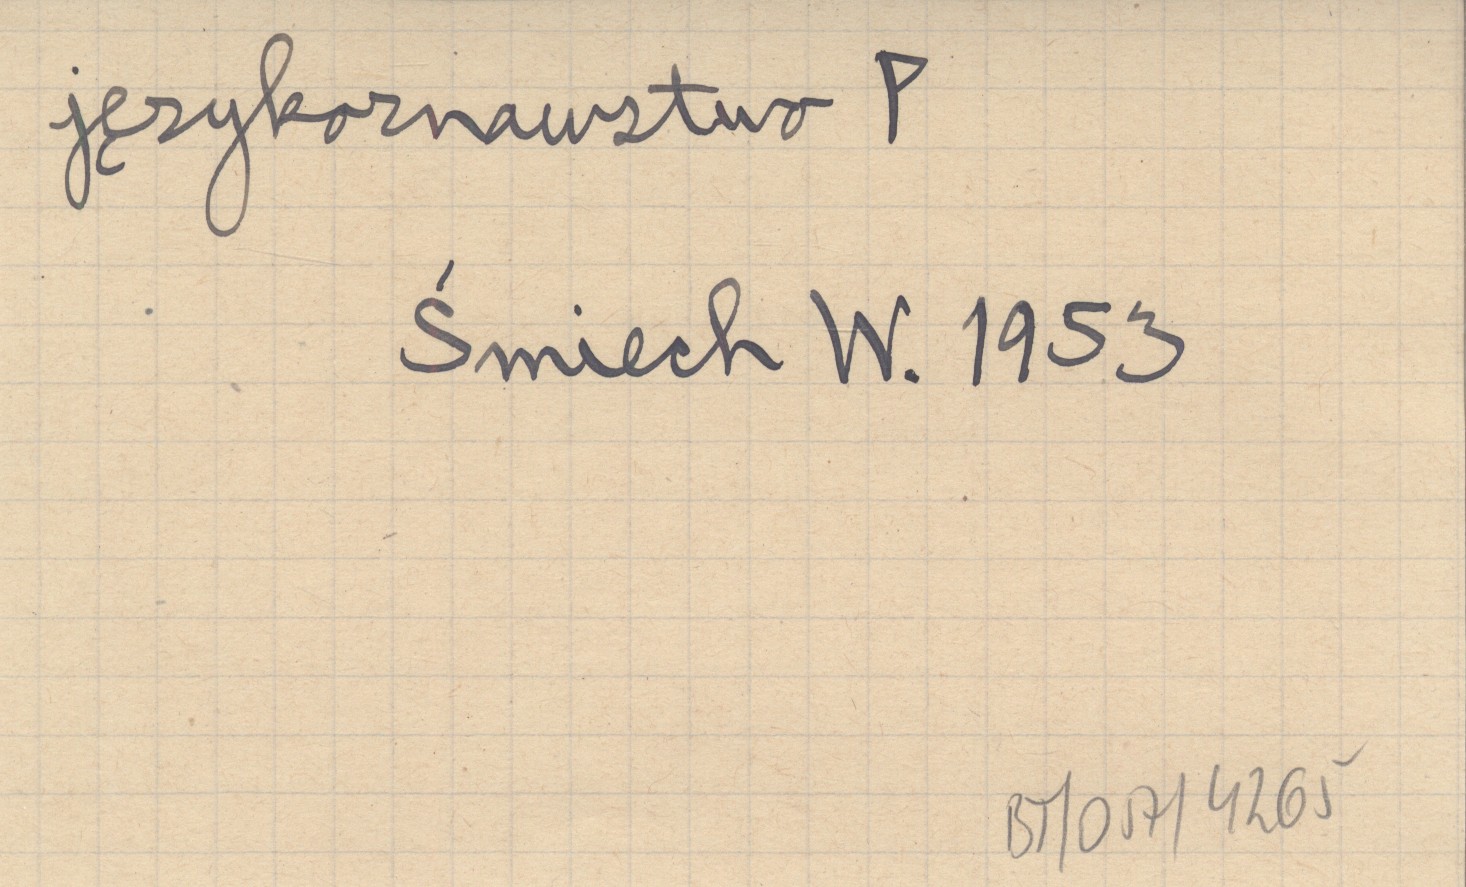 językoznawstwo P
Śmiech W. 1953
BT/057/4265